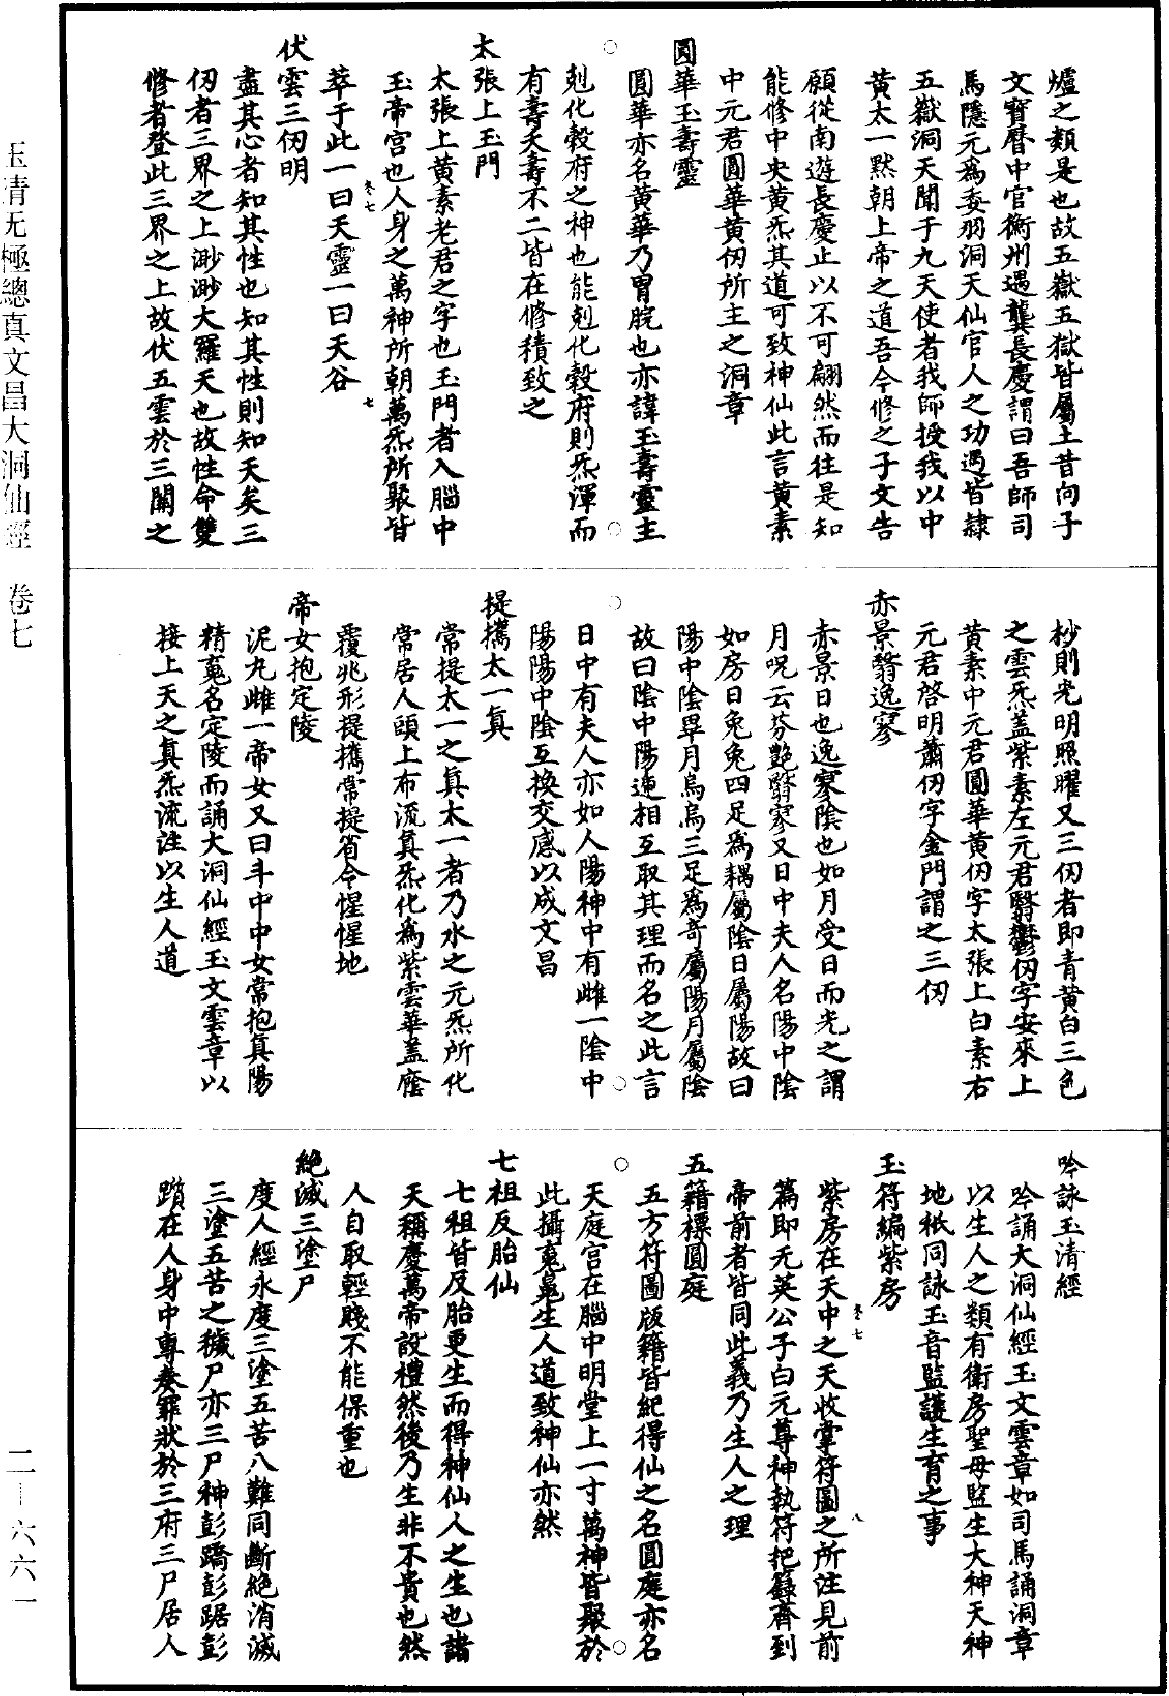 爐之類是也故五嶽五獄皆屬土昔向子
文寶曆中官衡州遇龔長慶謂曰吾師司
馬隱元爲委羽洞天仙官人之功過皆隸
五嶽洞天聞于九天使者我師授我以中
黄太一默朝上帝之道吾今修之子文告
願從南遊長慶止以不可翩然而往是知
能修中央黄炁其道可致神仙此言黄素
中元君圓華黄仞所主之洞章
圓華玉壽靈
圓華亦名黄華乃胃脘也亦諱玉壽靈主
剋化穀府之神也能剋化穀府則炁渾而
有壽夭壽不二皆在修積致之
太張上玉門
太張上黄素老君之字也玉門者入腦中
玉帝宫也人身之萬神所朝萬炁所聚皆
萃于此一曰天靈一曰天谷
卷七 七
伏雲三仞明
盡其心者知其性也知其性則知天矣三
仞者三界之上渺渺大羅天也故性命雙
修者登此三界之上故伏五雲於三關之
杪則光明照曜又三仞者即青黄白三色
之雲炁蓋紫素左元君翳鬱仞字安來上
黄素中元君圓華黄仞字太張上白素右
元君啓明蕭仞字金門謂之三仞
赤景翳逸寥
赤景日也逸寥陰也如月受日而光之謂
月呪云芬艶翳寥又日中夫人名陽中陰
如房日兔兔四足爲耦屬陰日屬陽故曰
陽中陰畢月烏烏三足爲奇屬陽月屬陰
故曰陰中陽連相互取其理而名之此言
日中有夫人亦如人陽神中有雌一陰中
陽陽中陰互換交感以成文昌
提攜太一真
常提太一之真太一者乃水之元炁所化
常居人頭上布流真炁化爲紫雲華蓋蔭
覆兆形提攜常提省令惺惺地
帝女抱定陵
泥丸雌一帝女又曰斗中中女常抱真陽
精䰟名定陵而誦大洞仙經玉文雲章以
接上天之真炁流注以生人道
吟詠玉清經
吟誦大洞仙經玉文雲章如司馬誦洞章
以生人之類有衛房聖母監生大神天神
地祇同詠玉音監護生育之事
玉符編紫房
紫房在天中之天收掌符圖之所注見前
篇即无英公子白元尊神執符把籙齊到
帝前者皆同此義乃生人之理
卷七 八
五籍標圓庭
五方符圖版籍皆紀得仙之名圓庭亦名
天庭宫在腦中明堂上一寸萬神皆聚於
此攝䰟㒵生人道致神仙亦然
七祖反胎仙
七祖皆反胎更生而得神仙人之生也諸
天稱慶萬帝設禮然後乃生非不貴也然
人自取輕賤不能保重也
絶滅三塗尸
度人經永度三塗五苦八難同斷絶消滅
三塗五苦之穢尸亦三尸神彭蹻彭踞彭
躓在人身中專奏罪狀於三府三尸居人
玉清无極總真文昌大洞仙經 卷七
二—六六一